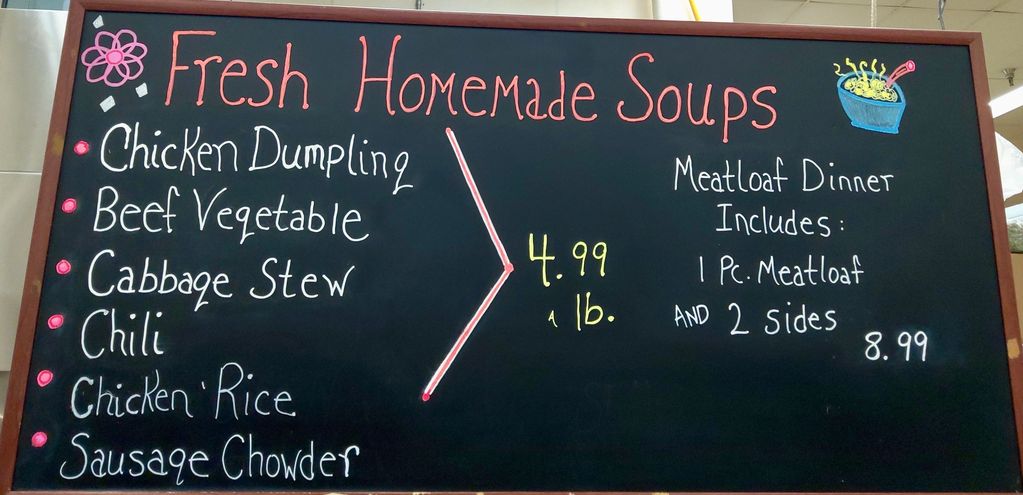 Fresh Homemade Soups
Chicken Dumpling
Beef Vegetable
Cabbage Stew
Chili
Chicken Rice
Sausage Chowder
4.99
a lb.
Meatloaf Dinner
Includes:
1 Pc. Meatloaf
AND 2 sides
8.99